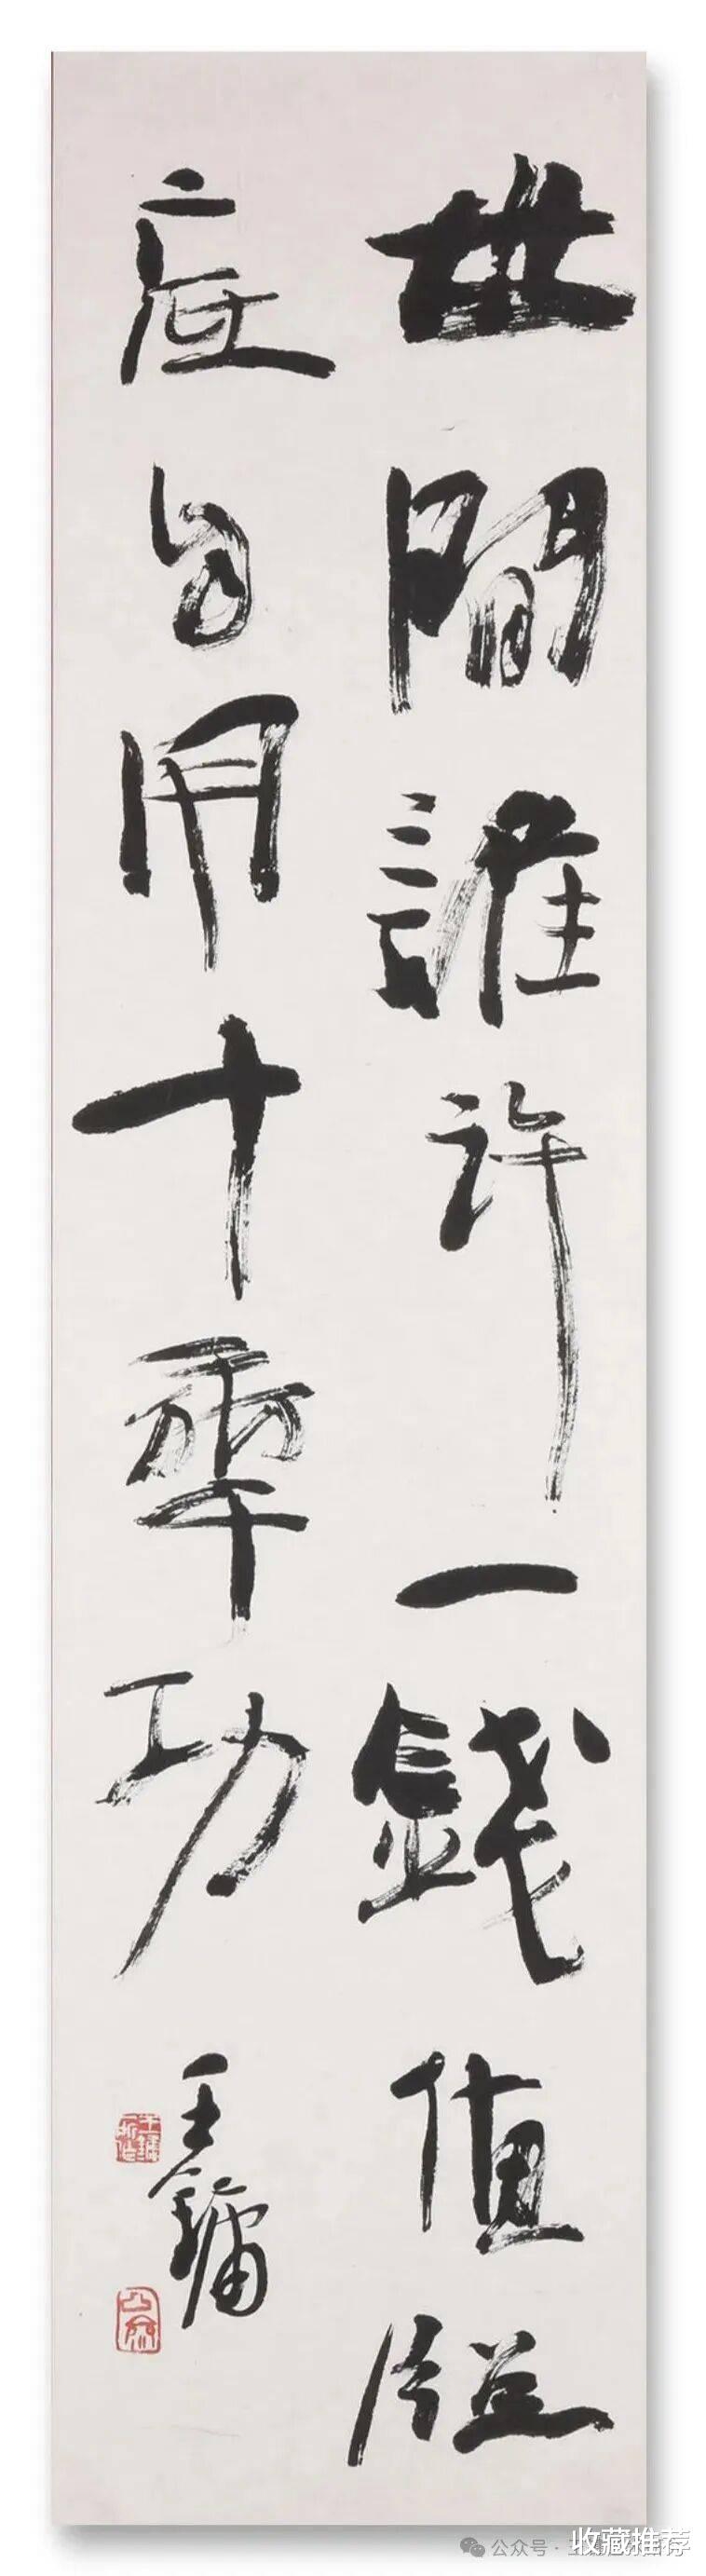 世間誰許一錢值牕
底自用十秊功
王鏞
公众号
收藏推荐